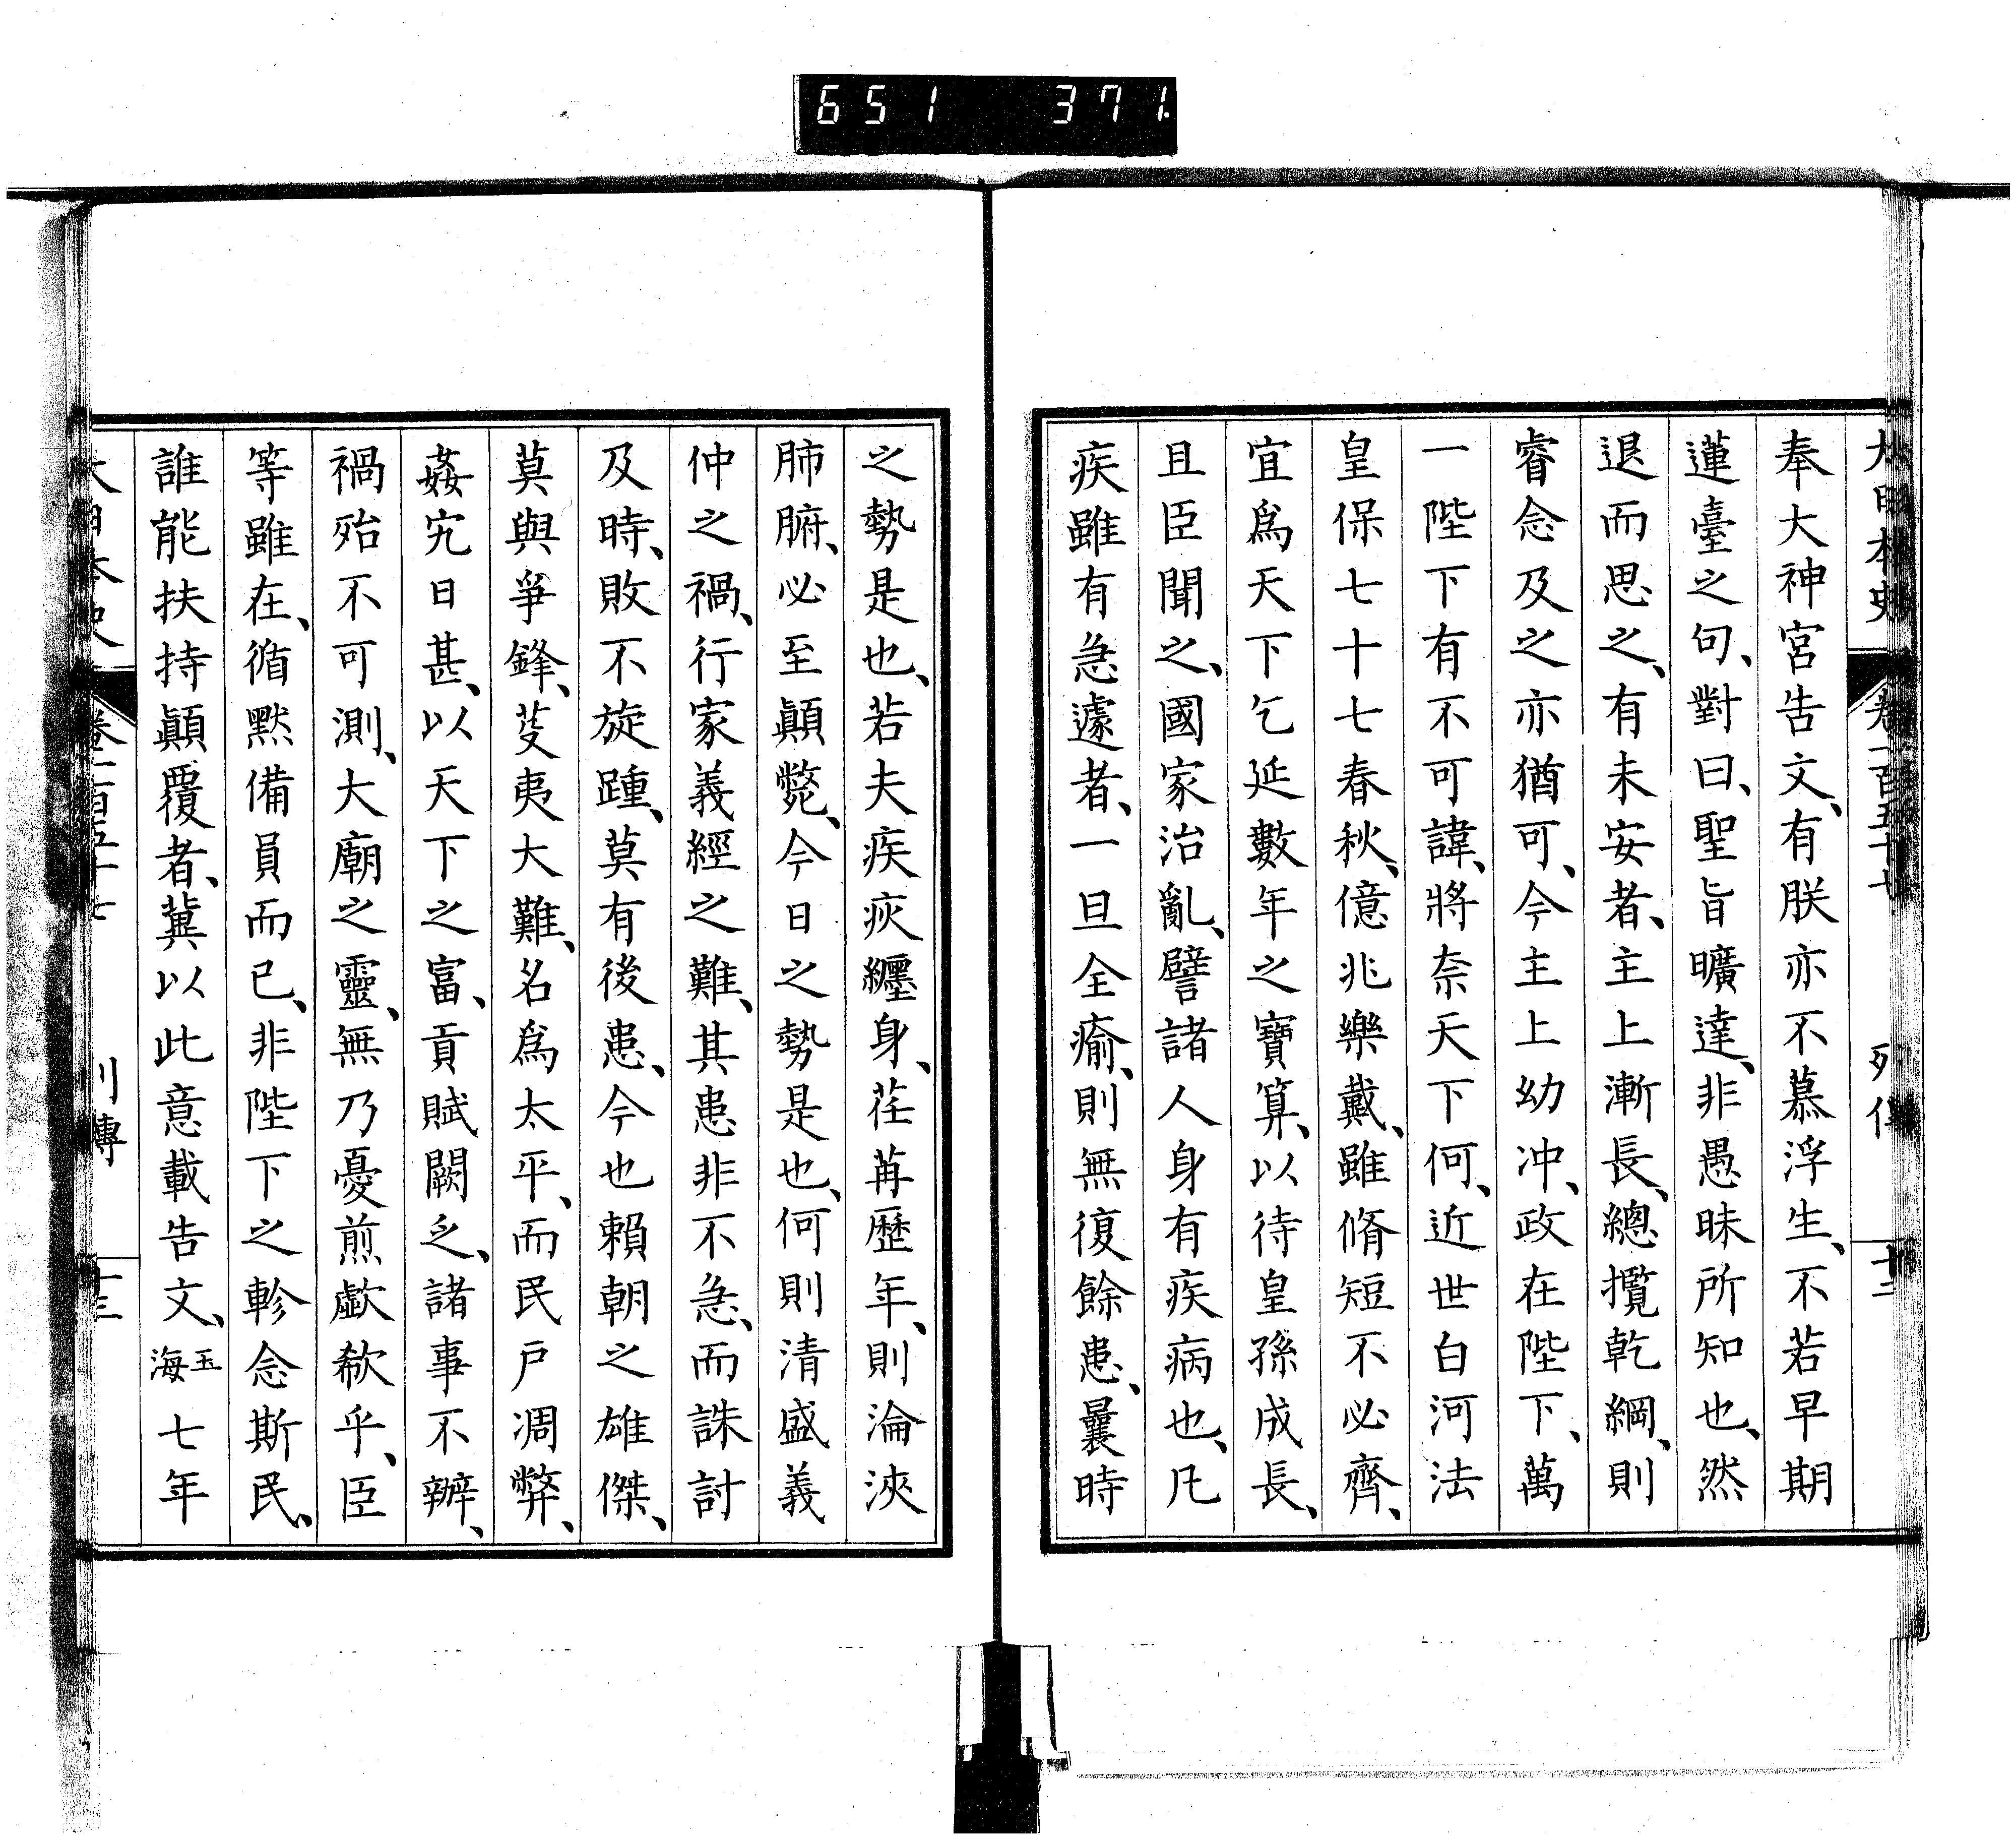 651 371
大日本史 卷一百五十七 列傳 十二
奉大神宮告文、有朕亦不慕浮生、不若早期
蓮臺之句、對曰、聖旨曠達、非愚昧所知也、然
退而思之、有未安者、主上漸長、總攬乾綱、則
睿念及之亦猶可、今主上幼冲、政在陛下、萬
一陛下有不可諱、將奈天下何、近世白河法
皇保七十七春秋、億兆樂戴、雖脩短不必齊、
宜爲天下乞延數年之寶算、以待皇孫成長、
且臣聞之、國家治亂、譬諸人身有疾病也、凡
疾雖有急遽者、一旦全瘉、則無復餘患、曩時
之勢是也、若夫疾疢纏身、荏苒歷年、則淪浹
肺腑、必至顚斃、今日之勢是也、何則清盛義
仲之禍、行家義經之難、其患非不急、而誅討
及時、敗不旋踵、莫有後患、今也賴朝之雄傑、
莫與爭鋒、芟夷大難、名爲太平、而民戶凋弊、
姦宄日甚、以天下之富、貢賦闕乏、諸事不辦、
禍殆不可測、大廟之靈、無乃憂煎歔欷乎、臣
等雖在、循默備員而已、非陛下之軫念斯民、
誰能扶持顚覆者、冀以此意載告文、玉海七年
大日本史 卷一百五十七 列傳 十三